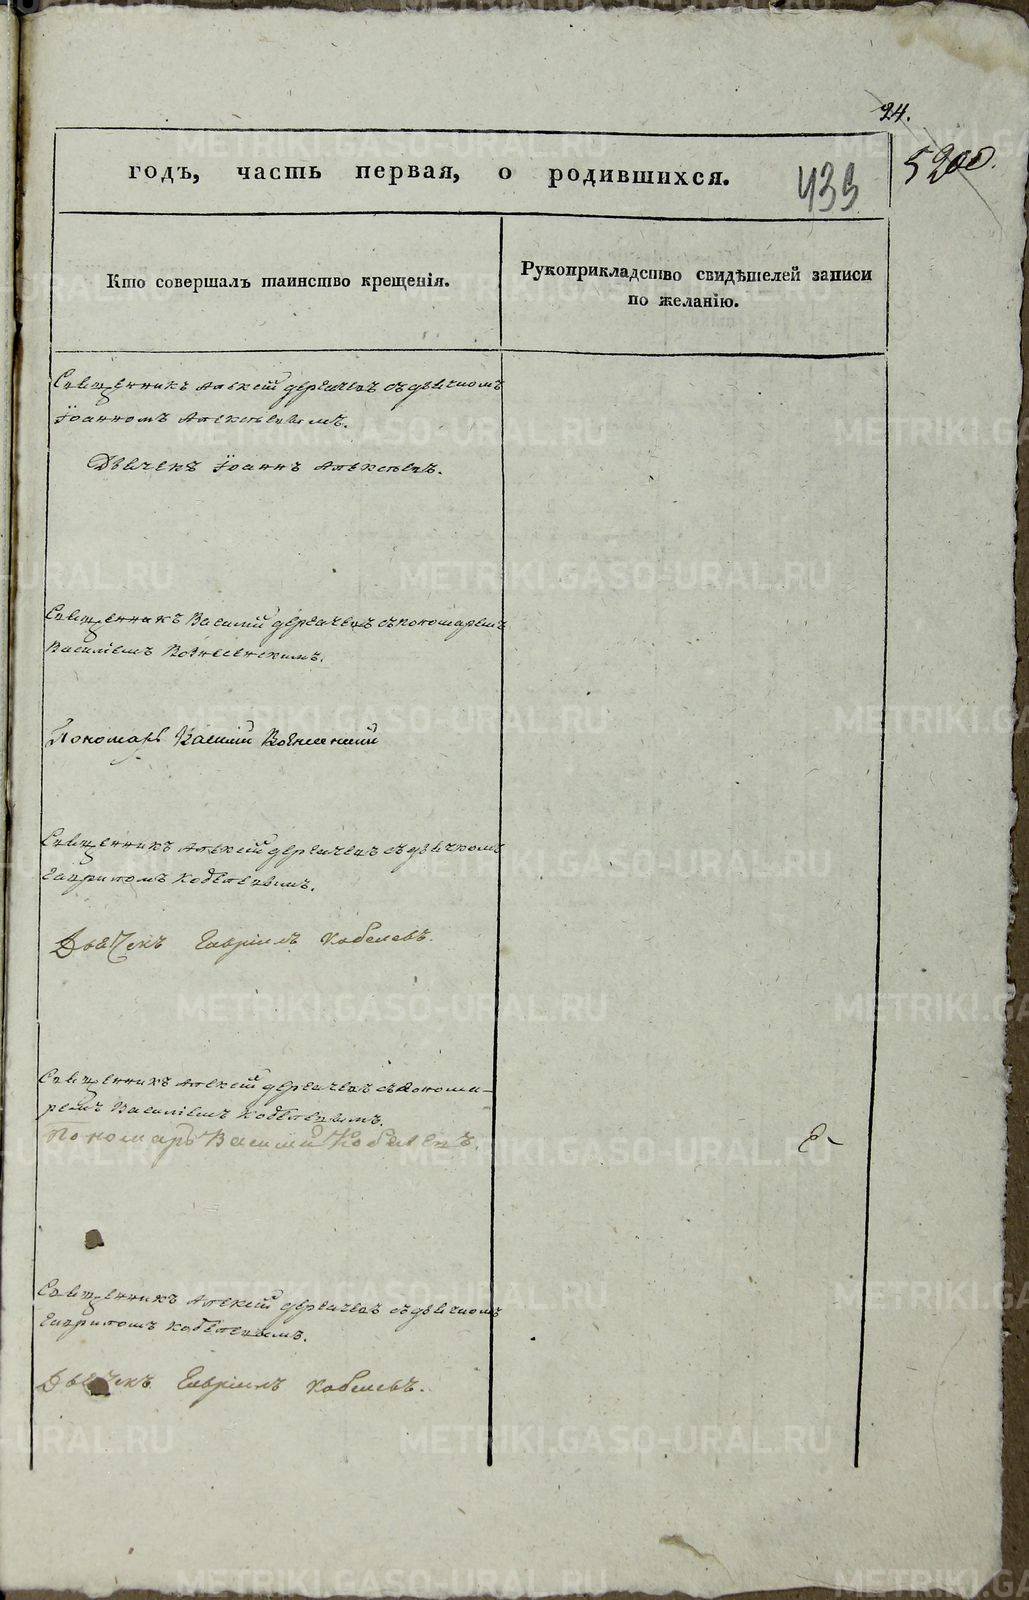 24.
годъ, часть первая, о родившихся.
433
Кто совершалъ таинство крещенія.
Рукоприкладство свидѣтелей записи
по желанію.
Священникъ Алексій съ дьячкомъ
Іоанномъ Алексѣевымъ.
Дьячекъ Іоаннъ Алексѣевъ.
Священникъ Василій съ пономаремъ
Василіемъ Вознесенскимъ.
Пономарь Василій Вознесенскій
Священникъ Алексій съ дьячкомъ
Гавриломъ Кобелевымъ.
Дьячекъ Гавріилъ Кобелевъ.
Священникъ Алексій съ понома-
ремъ Василіемъ Кобелевымъ.
Пономарь Василій Кобелевъ
Священникъ Алексій съ дьячкомъ
Гавриломъ Кобелевымъ.
Дьячекъ Гавріилъ Кобелевъ.
METRIKI.GASO-URAL.RU